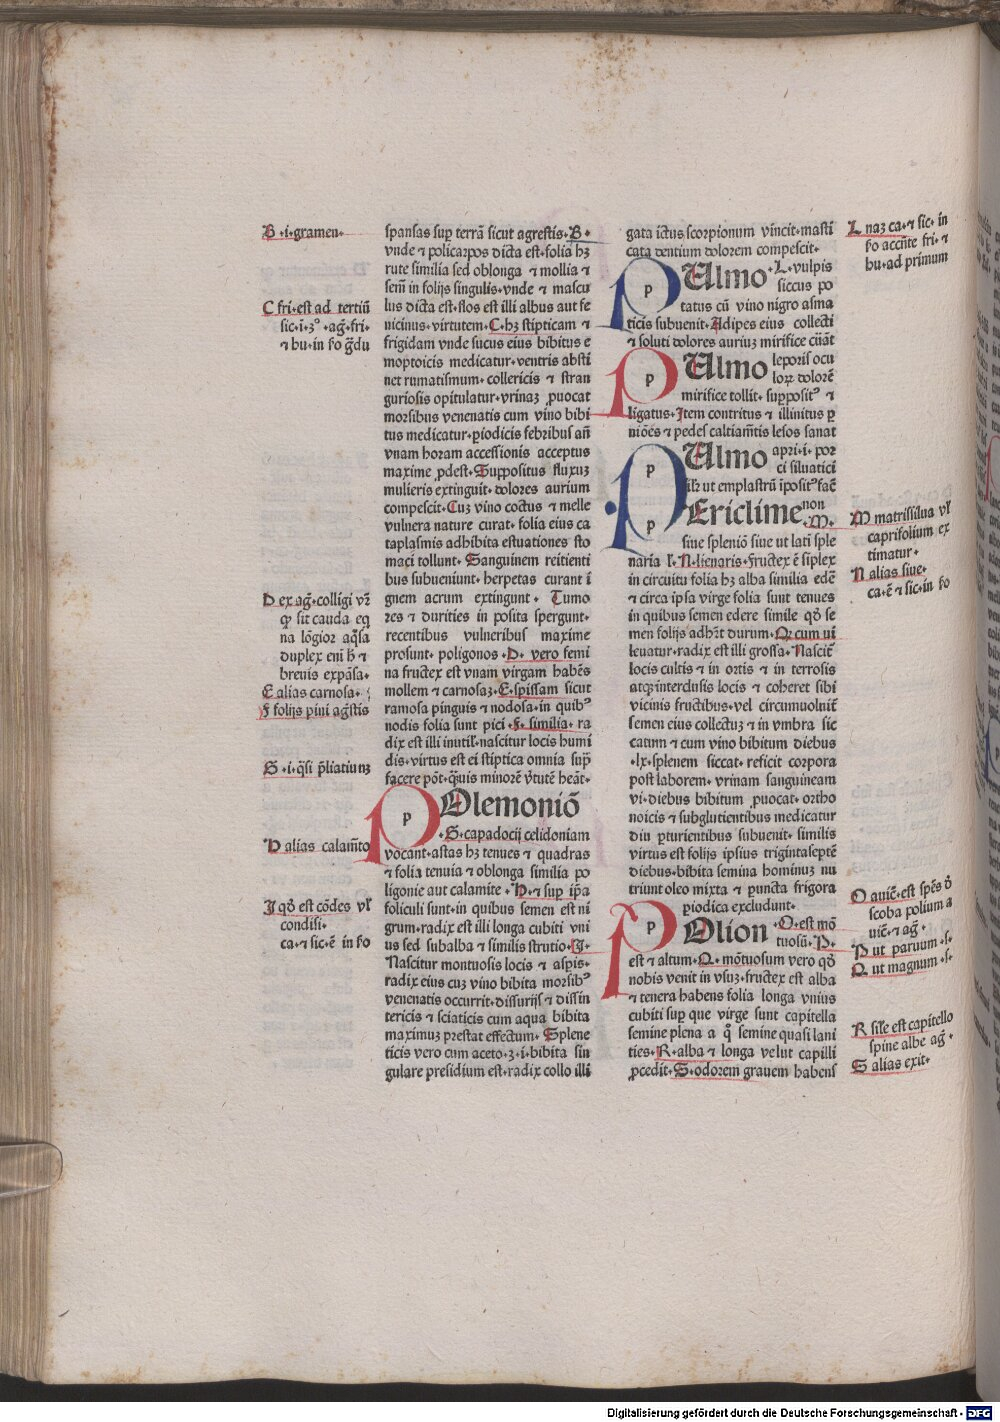 B·i·gramen·
C fri·est ad tertiũ
sic·ĩ·3°·ag̃·fri·
⁊ bu·in ſo g̃du
D ex ag̃·colligi
ꝙ ſit cauda eq
na lõgior aq̃ſa
duplex eni h̃ ⁊
breuis expãſa·
E alias carnoſa·
F folijs pini ag̃ſtis
G·i·q̃ſi p̃liatiunꝫ
H alias calam̃to
I qd̕ eſt cõdes
condiſi·
ca·⁊ ſic·ẽ in ſo
ſpanſas ſuꝑ terrã ſicut agreſtis·B·
vnde ⁊ policarpos dicta eſt·folia hꝫ
rute ſimilia ſed oblonga ⁊ mollia ⁊
ſem̃ in folijs ſingulis·vnde ⁊ maſcu
lus dicta eſt·flos eſt illi albus aut fe
nicinus·virtutem·C·hꝫ ſtipticam ⁊
frigidam vnde ſucus eius bibitus e
moptoicis medicatur·ventris abſti
net rumatiſmum·collericis ⁊ ſtran
guriosis opitulatur·vrinaꝫ ꝓuocat
morſibus venenatis cum vino bibi
tus medicatur·ꝑiodicis febribus añ
vnam horam acceſſionis acceptus
maxime ꝓdeſt·Suppoſitus fluxuꝫ
mulieris extinguit·dolores aurium
compeſcit·Cuꝫ vino coctus ⁊ melle
vulnera nature curat·folia eius ca
taplaſmis adhibita eſtuationes ſto
maci tollunt·Sanguinem reitienti
bus ſubueniunt·herpetas curant i
gnem acrum extingunt·Tumo
res ⁊ durities in poſita ſpergunt·
recentibus vulneribus maxime
proſunt·poligonos·D·vero femi
na fructex eſt vnam virgam habẽs
mollem ⁊ carnoſaꝫ·E·ſpiſſam ſicut
ramoſa pinguis ⁊ nodoſa·in quibꝰ
nodis folia ſunt pici·F·ſimilia·ra
dix eſt illi inutil̕·naſcitur locis humi
dis·virtus eſt ei ſtiptica omnia ſuꝑ
facere põt·q̃uis minorẽ v̕tutẽ heãt·
POlemoniõ
·G·capadocij celidoniam
vocant·aſtas hꝫ tenues ⁊ quadras
⁊ folia tenuia ⁊ oblonga ſimilia po
ligonie aut calamite·H·⁊ ſuꝑ ip̃a
foliculi ſunt·in quibus ſemen eſt ni
grum·radix eſt illi longa cubiti vni
us ſed ſubalba ⁊ ſimilis ſtrutio·I·
Naſcitur montuoſis locis ⁊ aſpis·
radix eius cuꝫ vino bibita morſibꝰ
venenatis occurrit·diſſurijs ⁊ diſſin
tericis ⁊ ſciaticis cum aqua bibita
maximuꝫ preſtat effectum·Splene
ticis vero cum aceto·ʒ·i·bibita ſin
gulare preſidium eſt·radix collo illi
gata ictus ſcorpionum vincit·maſti
cata dentium dolorem compeſcit·
PUlmo·L·vulpis
ſiccus po
tatus cũ vino nigro aſma
ticis ſubuenit·Adipes eius collecti
⁊ ſoluti dolores auriuꝫ mirifice cũãt
PUlmo leporis ocu
loꝝ dolorẽ
mirifice tollit·ſuppoſitꝰ ⁊
ligatus·Item contritus ⁊ illinitus ꝑ
niões ⁊ pedeſ caltiam̃tis leſos ſanat
PUlmo apri·i·por
ci ſiluatici
ſil̕r ut emplaſtrũ ĩpoſitꝰ facẽ
PEriclimenon
·M·
ſiue ſpleniõ ſiue ut lati ſple
naria ł·N·lienaris·fructex ẽ ſiplex
in circuitu folia hꝫ alba ſimilia edẽ
⁊ circa ipſa virge folia ſunt tenues
in quibus ſemen edere ſimile qd̕ ſe
men folijs adhr̃t durum·Qꝛ cum ui
leuatur·radix eſt illi groſſa·Naſcit̃
locis cultis ⁊ in ortis ⁊ in terroſis
atqꝫ interclusis locis ⁊ coheret ſibi
vicinis fructibus·vel circumuoluit̃
ſemen eius collectuꝫ ⁊ in vmbra ſic
catum ⁊ cum vino bibitum diebus
·lx·ſplenem ſiccat·reficit corpora
poſt laborem·vrinam ſanguineam
vi·diebus bibitum ꝓuocat·ortho
noicis ⁊ ſubglutientibus medicatur
diu ꝑturientibus ſubuenit·ſimilis
virtus eſt folijs ipſius trigintaſeptẽ
diebus·bibita ſemina hominuꝫ nu
triunt oleo mixta ⁊ ꝑuncta frigora
ꝑiodica excludunt·
POlion·O·eſt mõ
tuoſũ·P·
eſt ⁊ altum·Q·mõtuoſum vero qd̕
nobis venit in vſuꝫ·fructex eſt alba
⁊ tenera habens folia longa vnius
cubiti ſuꝑ que virge ſunt capitella
ſemine plena a q̊ ſemine quaſi lani
ties·R·alba ⁊ longa velut capilli
ꝓcedit·S·odorem grauem habenſ
L naꝫ ca·⁊ ſic·in
ſo accñte fri·⁊
bu·ad primum
M matriſſilua vł
caprifolium ex
timatur·
N alias ſiue·
ca·ẽ ⁊ ſic·in ſo
O auic̃·eſt ſpẽs
ſcoba polium a
uic̃·⁊ ag̃·
P ut paruum·ſ·
Q ut magnum·ſ·
R ſil̕e eſt capitello
ſpine albe ag̃·
S alias exit·
Digitalisierung gefördert durch die Deutsche Forschungsgemeinschaft - DFG